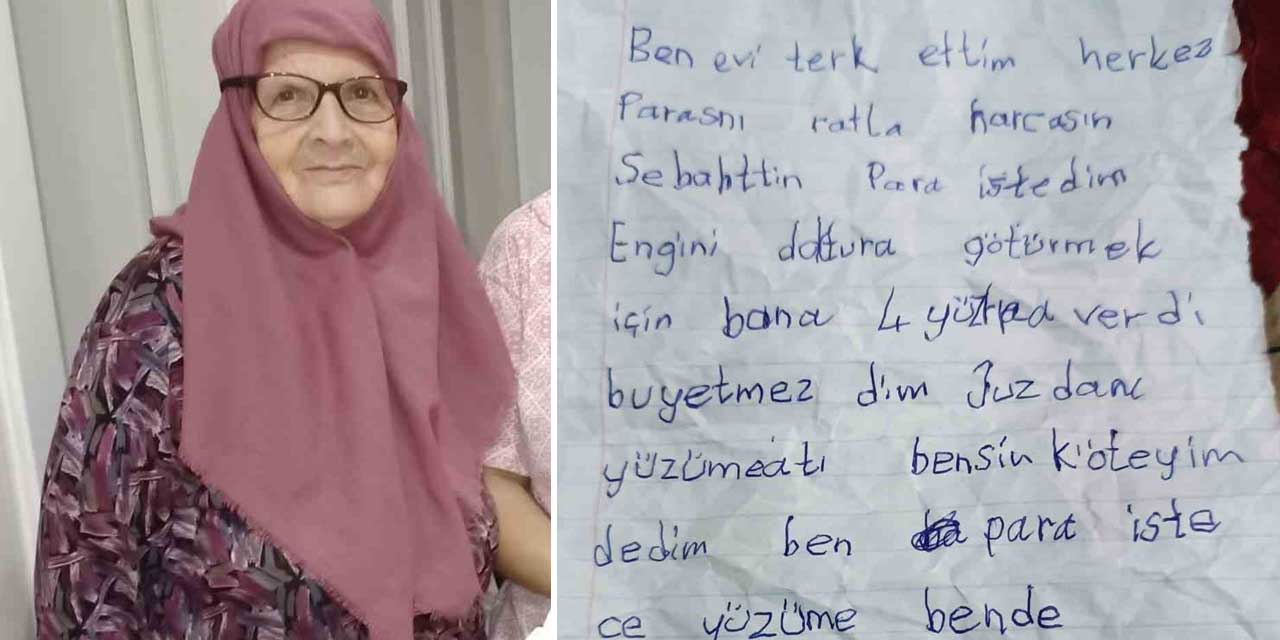 Ben evi terk ettim herkez
Parasnı ratla harcasın
Sebahttin Para istedim
Engini doktura götürmek
için bana 4 yüz verdi
buyetmez dim Juzdanı
yüzümeatı bensin köteyim
dedim ben para iste
ce yüzüme bende